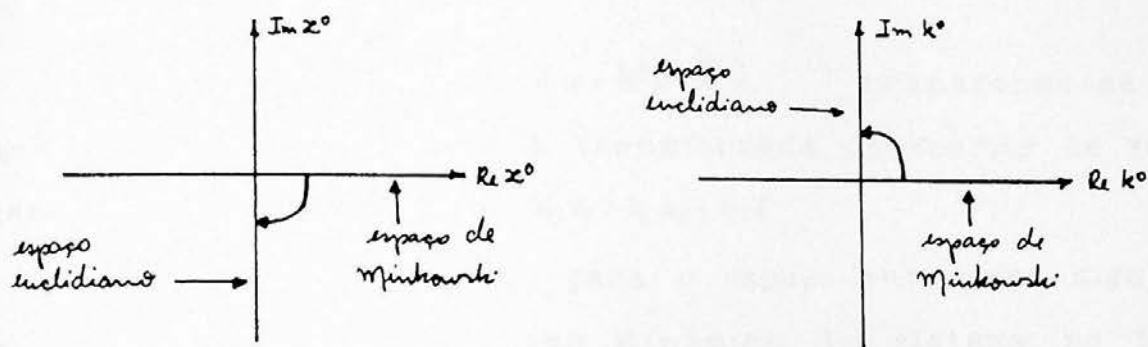 Im x⁰
Re x⁰
espaço
euclidiano
espaço de
Minkowski
Im k⁰
espaço
euclidiano
Re k⁰
espaço de
Minkowski